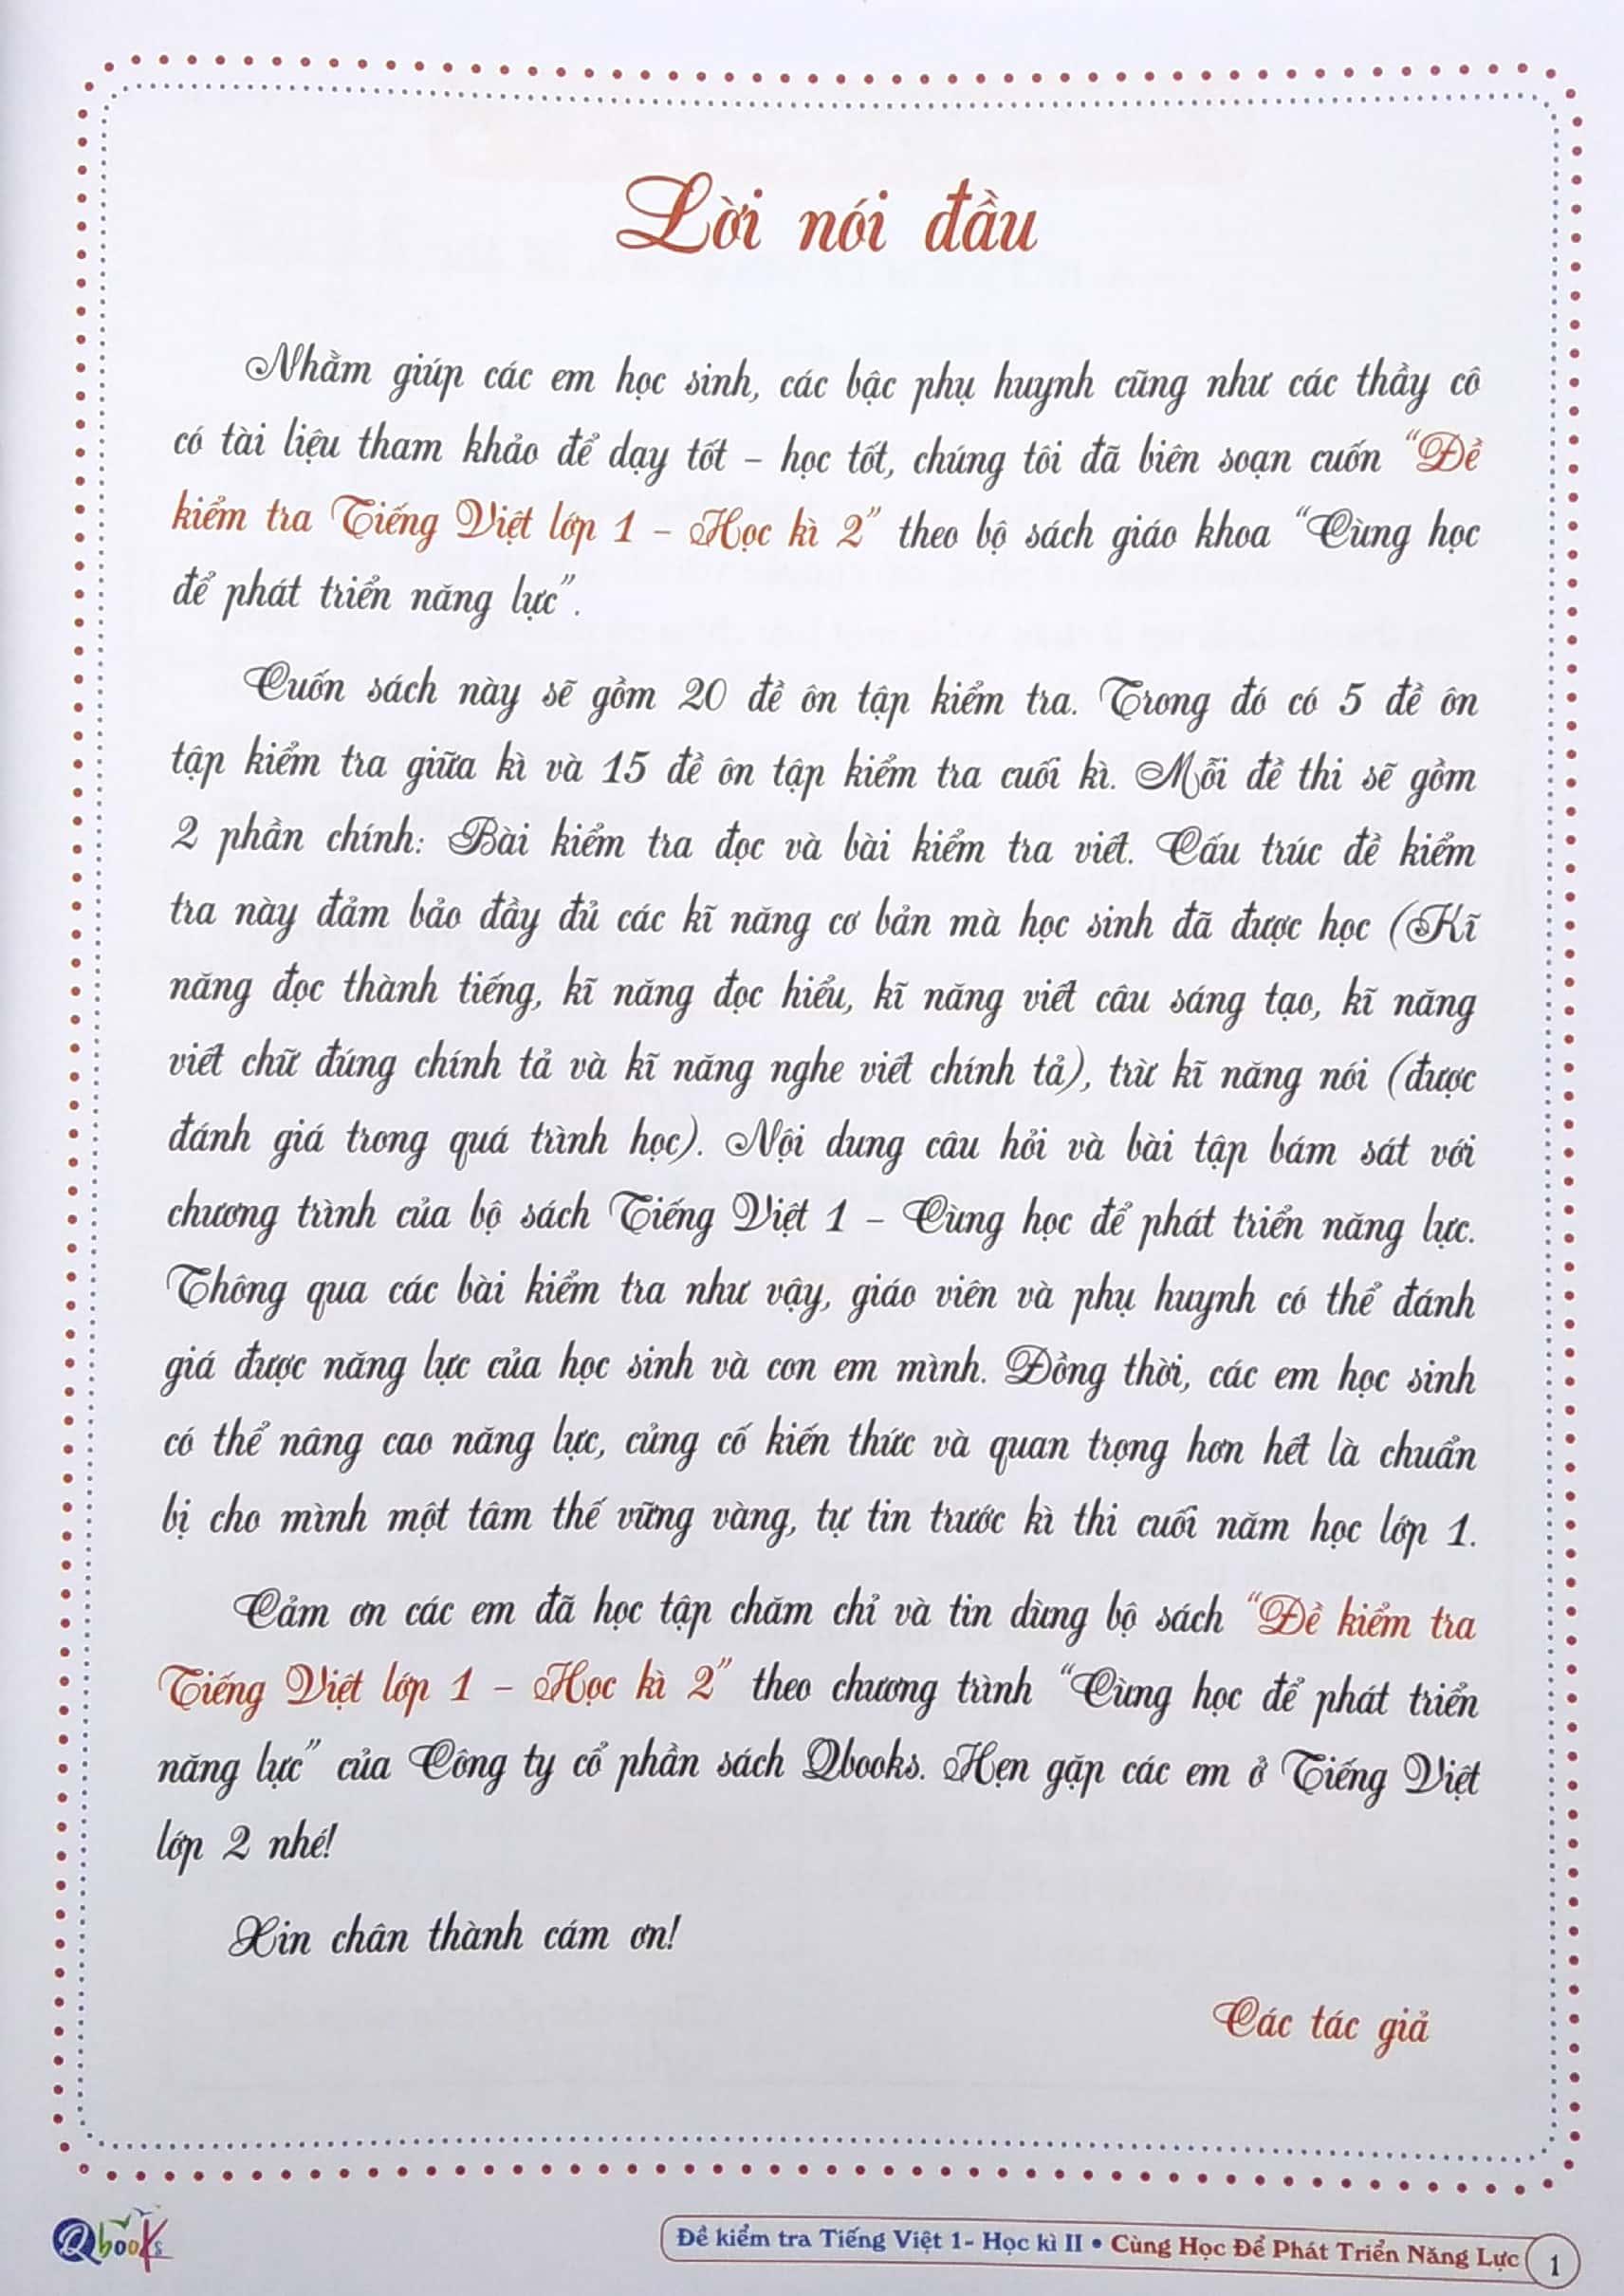 Lời nói đầu
Nhằm giúp các em học sinh, các bậc phụ huynh cũng như các thầy cô
có tài liệu tham khảo để dạy tốt – học tốt, chúng tôi đã biên soạn cuốn “Đề
kiểm tra Tiếng Việt lớp 1 – Học kì 2” theo bộ sách giáo khoa “Cùng học
để phát triển năng lực”.
Cuốn sách này sẽ gồm 20 đề ôn tập kiểm tra. Trong đó có 5 đề ôn
tập kiểm tra giữa kì và 15 đề ôn tập kiểm tra cuối kì. Mỗi đề thi sẽ gồm
2 phần chính: Bài kiểm tra đọc và bài kiểm tra viết. Cấu trúc đề kiểm
tra này đảm bảo đầy đủ các kĩ năng cơ bản mà học sinh đã được học (Kĩ
năng đọc thành tiếng, kĩ năng đọc hiểu, kĩ năng viết câu sáng tạo, kĩ năng
viết chữ đúng chính tả và kĩ năng nghe viết chính tả), trừ kĩ năng nói (được
đánh giá trong quá trình học). Nội dung câu hỏi và bài tập bám sát với
chương trình của bộ sách Tiếng Việt 1 – Cùng học để phát triển năng lực.
Thông qua các bài kiểm tra như vậy, giáo viên và phụ huynh có thể đánh
giá được năng lực của học sinh và con em mình. Đồng thời, các em học sinh
có thể nâng cao năng lực, củng cố kiến thức và quan trọng hơn hết là chuẩn
bị cho mình một tâm thế vững vàng, tự tin trước kì thi cuối năm học lớp 1.
Cảm ơn các em đã học tập chăm chỉ và tin dùng bộ sách “Đề kiểm tra
Tiếng Việt lớp 1 – Học kì 2” theo chương trình “Cùng học để phát triển
năng lực” của Công ty cổ phần sách Qbooks. Hẹn gặp các em ở Tiếng Việt
lớp 2 nhé!
Xin chân thành cám ơn!
Các tác giả
Qbooks
Đề kiểm tra Tiếng Việt 1- Học kì II • Cùng Học Để Phát Triển Năng Lực 1